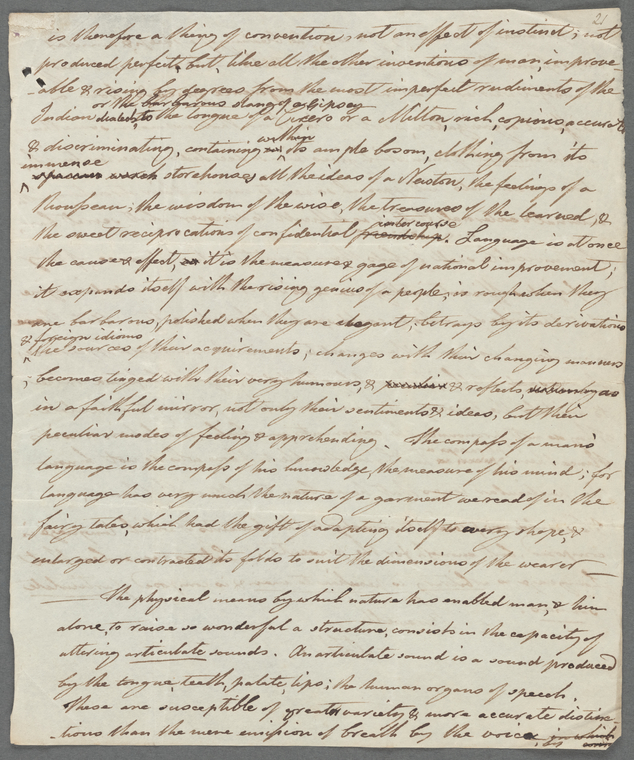 21
is therefore a thing of convention, not an effect of instinct; not
produced perfect, but, like all the other inventions of man, improve-
-able & rising by degrees from the most imperfect rudiments of the
or the barbarous slang of a Gipsey
Indian dialects, to the tongue of a Cicero or a Milton, rich, copious, accurate
& discriminating, containing within its ample bosom, clothing from its
immense
spacious storehouses, all the ideas of a Newton, the feelings of a
Rousseau, the wisdom of the wise, the treasures of the learned, &
intercourse
the sweet reciprocations of confidential friendship. Language is at once
the cause & effect, it is the measure & gage of national improvement;
it expands itself with the rising genius of a people, is rough when they
are barbarous, polished when they are elegant, betrays by its derivations
& foreign idioms
the sources of their acquirements; changes with their changing manners
; becomes tinged with their very humours, & reflects, as
in a faithful mirror, not only their sentiments & ideas, but their
peculiar modes of feeling & apprehending. The compass of a man's
language is the compass of his knowledge, the measure of his mind; for
language has very much the nature of a garment we read of in the
fairy tales, which had the gift of adapting itself to every shape &
enlarged or contracted its folds to suit the dimensions of the wearer —
— The physical means by which nature has enabled man, & him
alone, to raise so wonderful a structure, consists in the capacity of
uttering articulate sounds. An articulate sound is a sound produced
by the tongue, teeth, palate, lips; the human organs of speech.
These are susceptible of greater variety & more accurate distinc-
-tions than the mere emission of breath by the voice